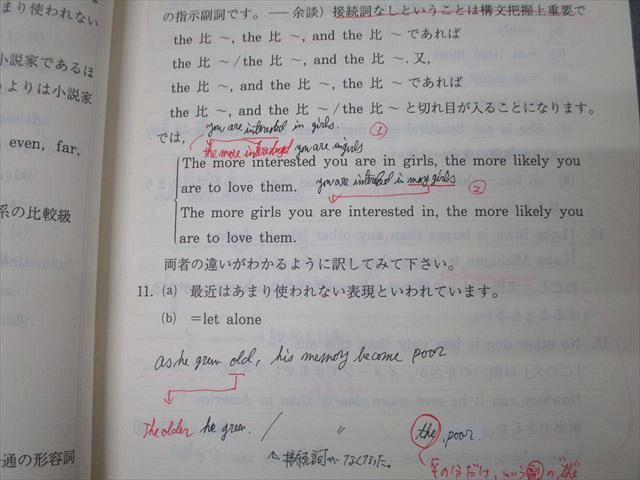 まり使われない
小説家であるほ
よりは小説家
even, far,
系の比較級
通の形容詞
の指示副詞です。――余談) 接続詞なしということは構文把握上重要で
the 比 ～, the 比 ～, and the 比 ～ であれば
the 比 ～/the 比 ～, and the 比 ～. 又,
the 比 ～, and the 比 ～, the 比 ～ であれば
the 比 ～, and the 比 ～/the 比 ～ と切れ目が入ることになります。
では, you are interested in girls. ①
the more interested you are in girls
The more interested you are in girls, the more likely you
are to love them. you are interested in many girls ②
The more girls you are interested in, the more likely you
are to love them.
両者の違いがわかるように訳してみて下さい。
11. (a) 最近はあまり使われない表現といわれています。
(b) =let alone
as he grew old, his memory become poor
The older he grew. / 〃 the poor.
接続詞がなくなった。
その分だけ, という副の"the